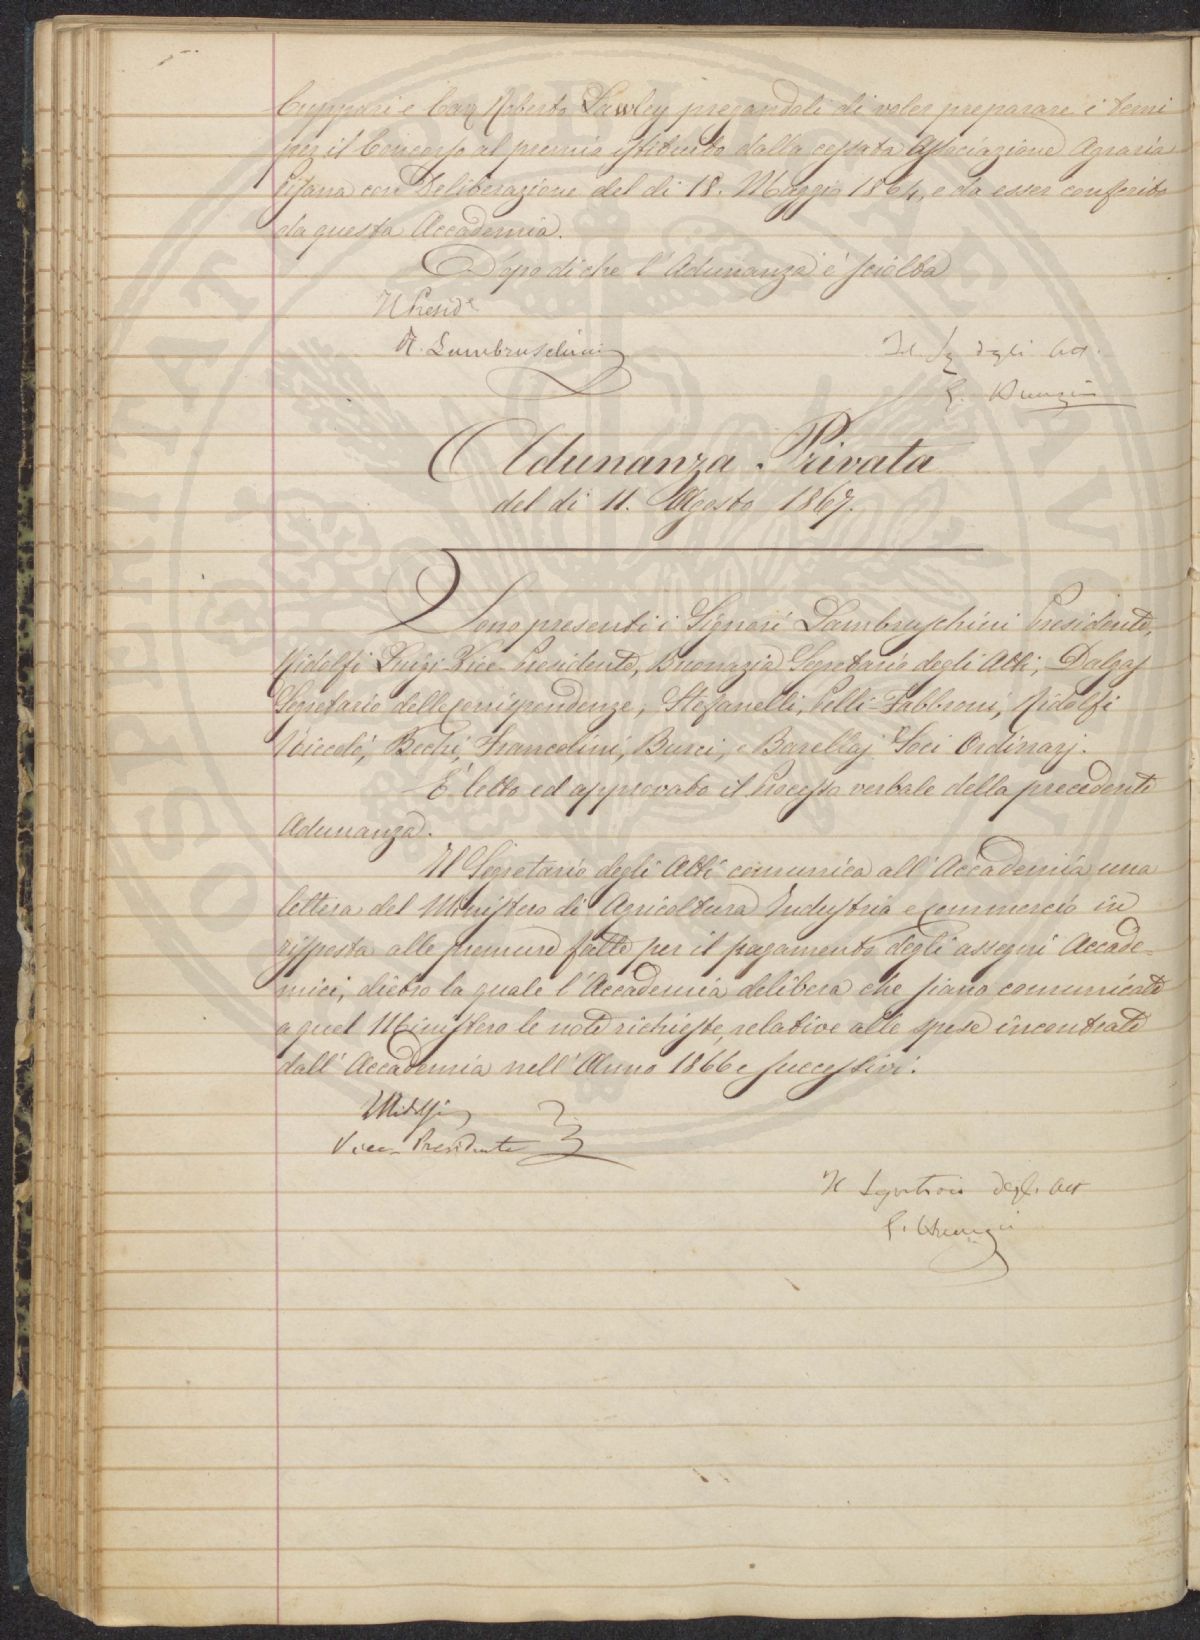 Cuppari e Cav. Roberto Lawley pregandoli di voler preparare i temi
per il Concorso al premio istituito dalla cessata Associazione Agraria
Pisana con Deliberazione del dì 18. Maggio 1864, e da esser conferito
da questa Accademia.
Dopo di che l'Adunanza è sciolta
Il Presid.e
R. Lambruschini
Il Seg degli Att.
Adunanza Privata
del dì 11. Agosto 1867.
Sono presenti i Signori Lambruschini Presidente,
Ridolfi Luigi Vice Presidente, Buonazia Segretario degli Atti, Dalgas
Segretario delle corrispondenze, Stefanelli, Pelli-Fabbroni, Ridolfi
Niccolò, Bechi, Francolini, Burci, e Barellaj Soci Ordinarj.
È letto ed approvato il Processo verbale della precedente
Adunanza.
Il Segretario degli Atti comunica all'Accademia una
lettera del Ministero di Agricoltura Industria e commercio in
risposta alle premure fatte per il pagamento degli assegni Accade-
mici, dietro la quale l'Accademia delibera che siano comunicate
a quel Ministero le note richieste, relative alle spese incontrate
dall'Accademia nell'Anno 1866 e successivi.
LRidolfi
Vice-Presidente
Il Segretario degli Att
OSPERITATI PUBLICAE AUG